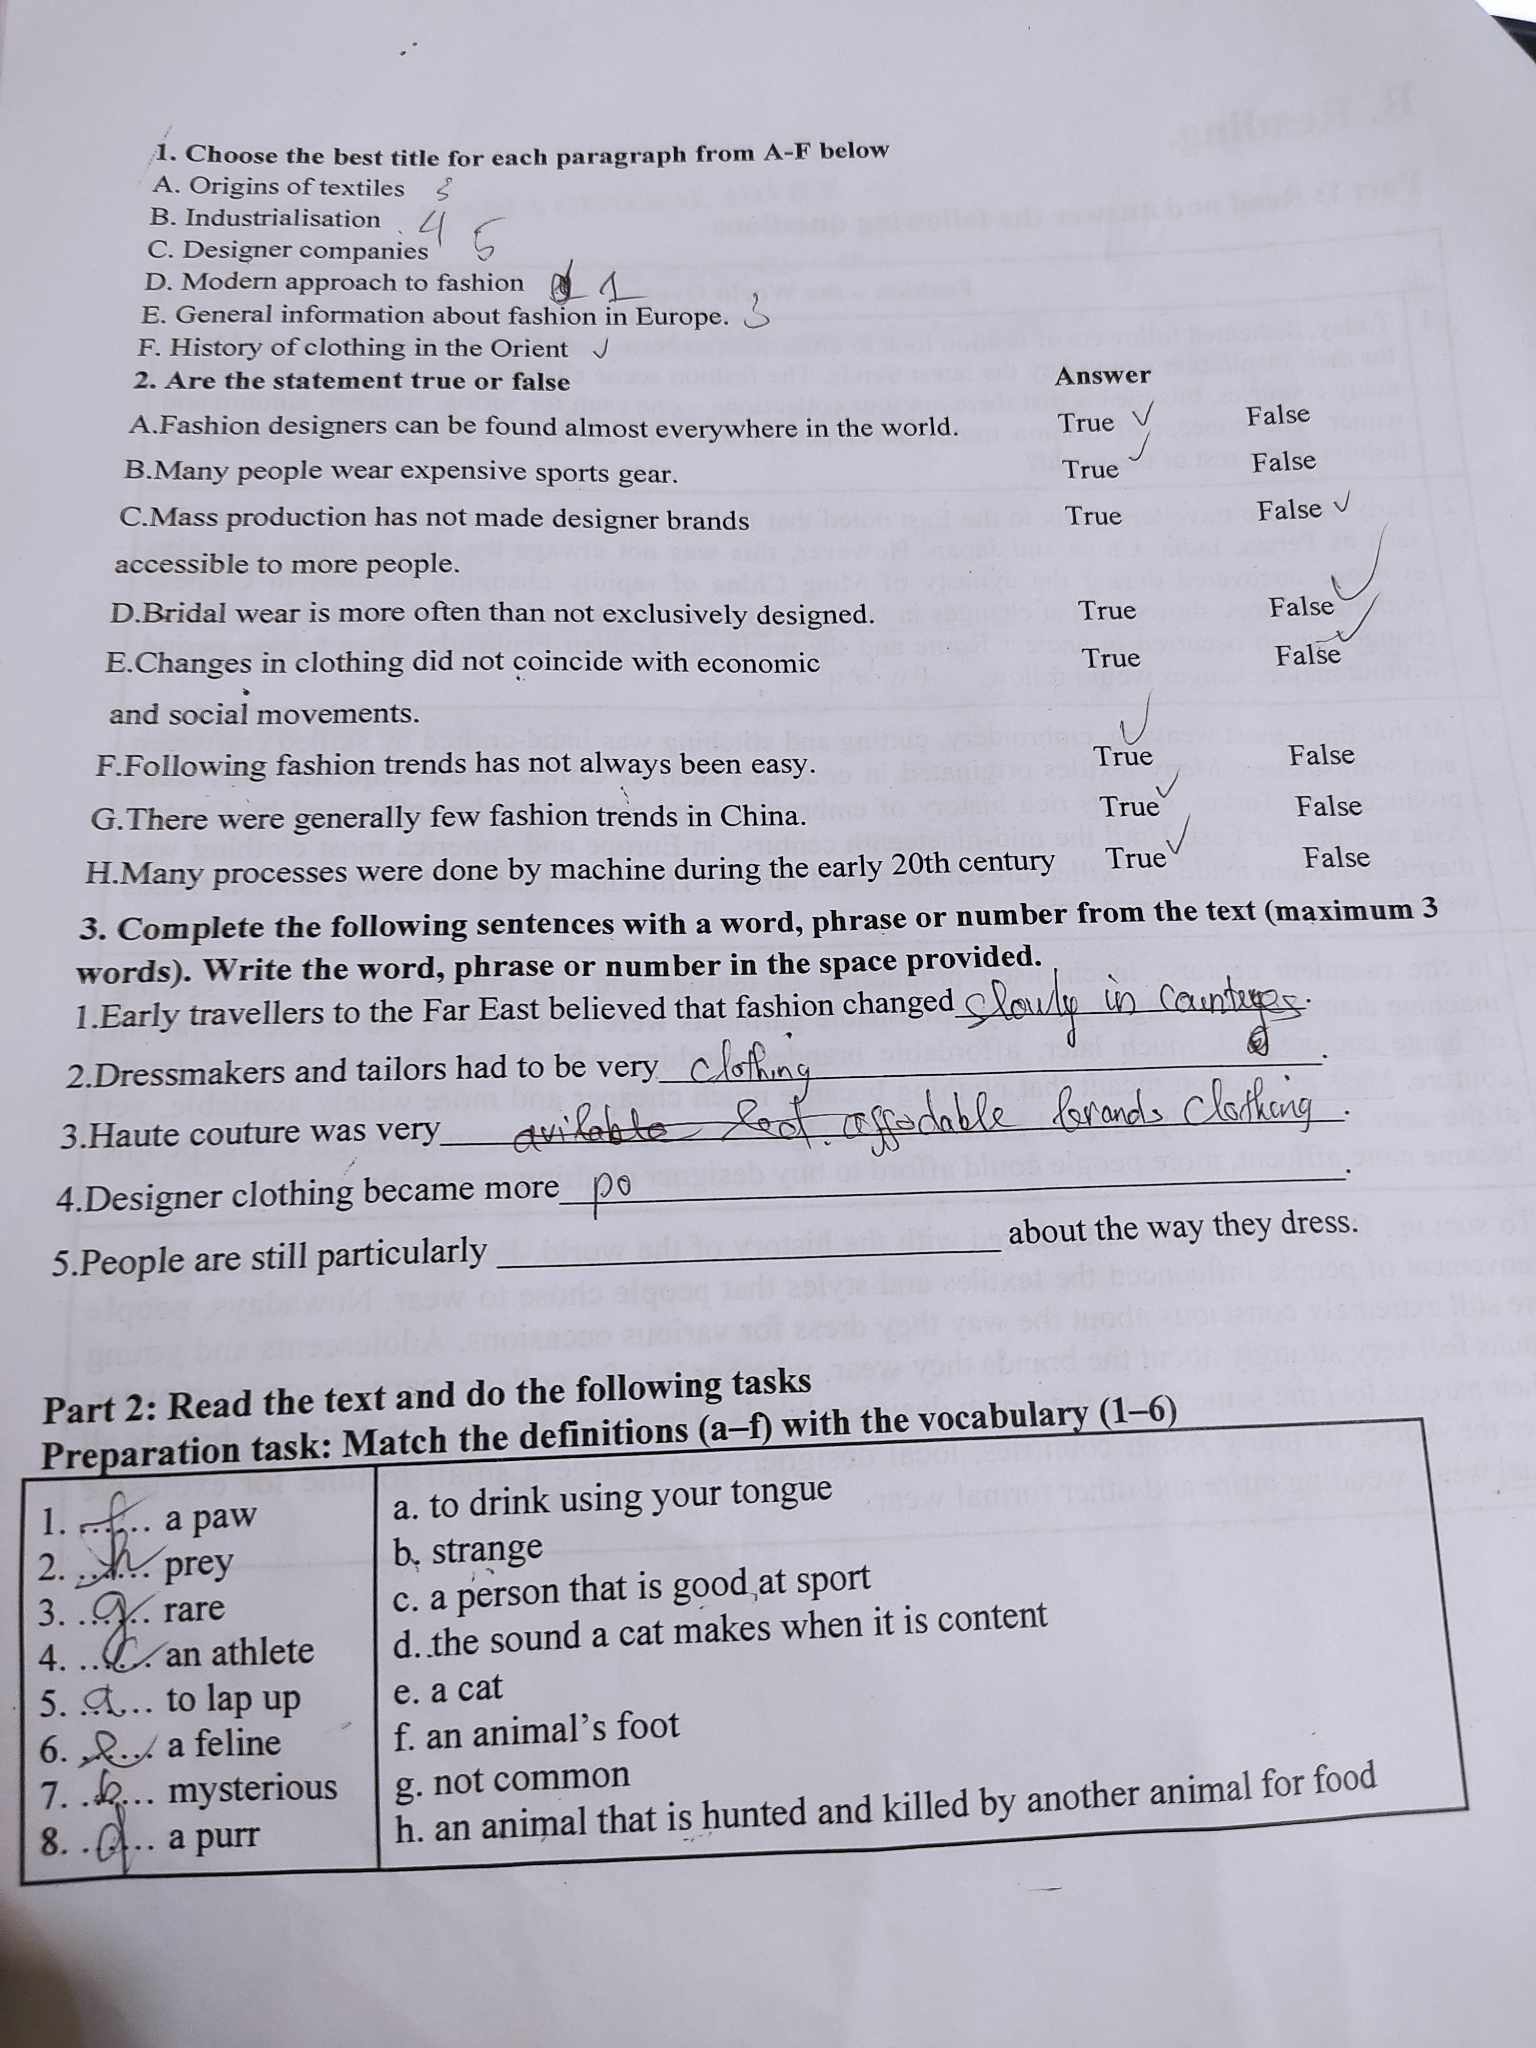 1. Choose the best title for each paragraph from A-F below
A. Origins of textiles 3
B. Industrialisation 4
C. Designer companies 5
D. Modern approach to fashion 1
E. General information about fashion in Europe. 3
F. History of clothing in the Orient ✓
2. Are the statement true or false Answer
A.Fashion designers can be found almost everywhere in the world. True ✓ False
B.Many people wear expensive sports gear. True ✓ False
C.Mass production has not made designer brands True False ✓
accessible to more people.
D.Bridal wear is more often than not exclusively designed. True False ✓
E.Changes in clothing did not coincide with economic True False ✓
and social movements.
F.Following fashion trends has not always been easy. True ✓ False
G.There were generally few fashion trends in China. True ✓ False
H.Many processes were done by machine during the early 20th century True ✓ False
3. Complete the following sentences with a word, phrase or number from the text (maximum 3
words). Write the word, phrase or number in the space provided.
1.Early travellers to the Far East believed that fashion changed slowly in .
2.Dressmakers and tailors had to be very clothing .
3.Haute couture was very affodable brands Clothing .
4.Designer clothing became more po .
5.People are still particularly about the way they dress.
Part 2: Read the text and do the following tasks
Preparation task: Match the definitions (a–f) with the vocabulary (1–6)
1. f a paw
2. h prey
3. g rare
4. c an athlete
5. a to lap up
6. e a feline
7. b mysterious
8. d a purr
a. to drink using your tongue
b. strange
c. a person that is good at sport
d. the sound a cat makes when it is content
e. a cat
f. an animal's foot
g. not common
h. an animal that is hunted and killed by another animal for food